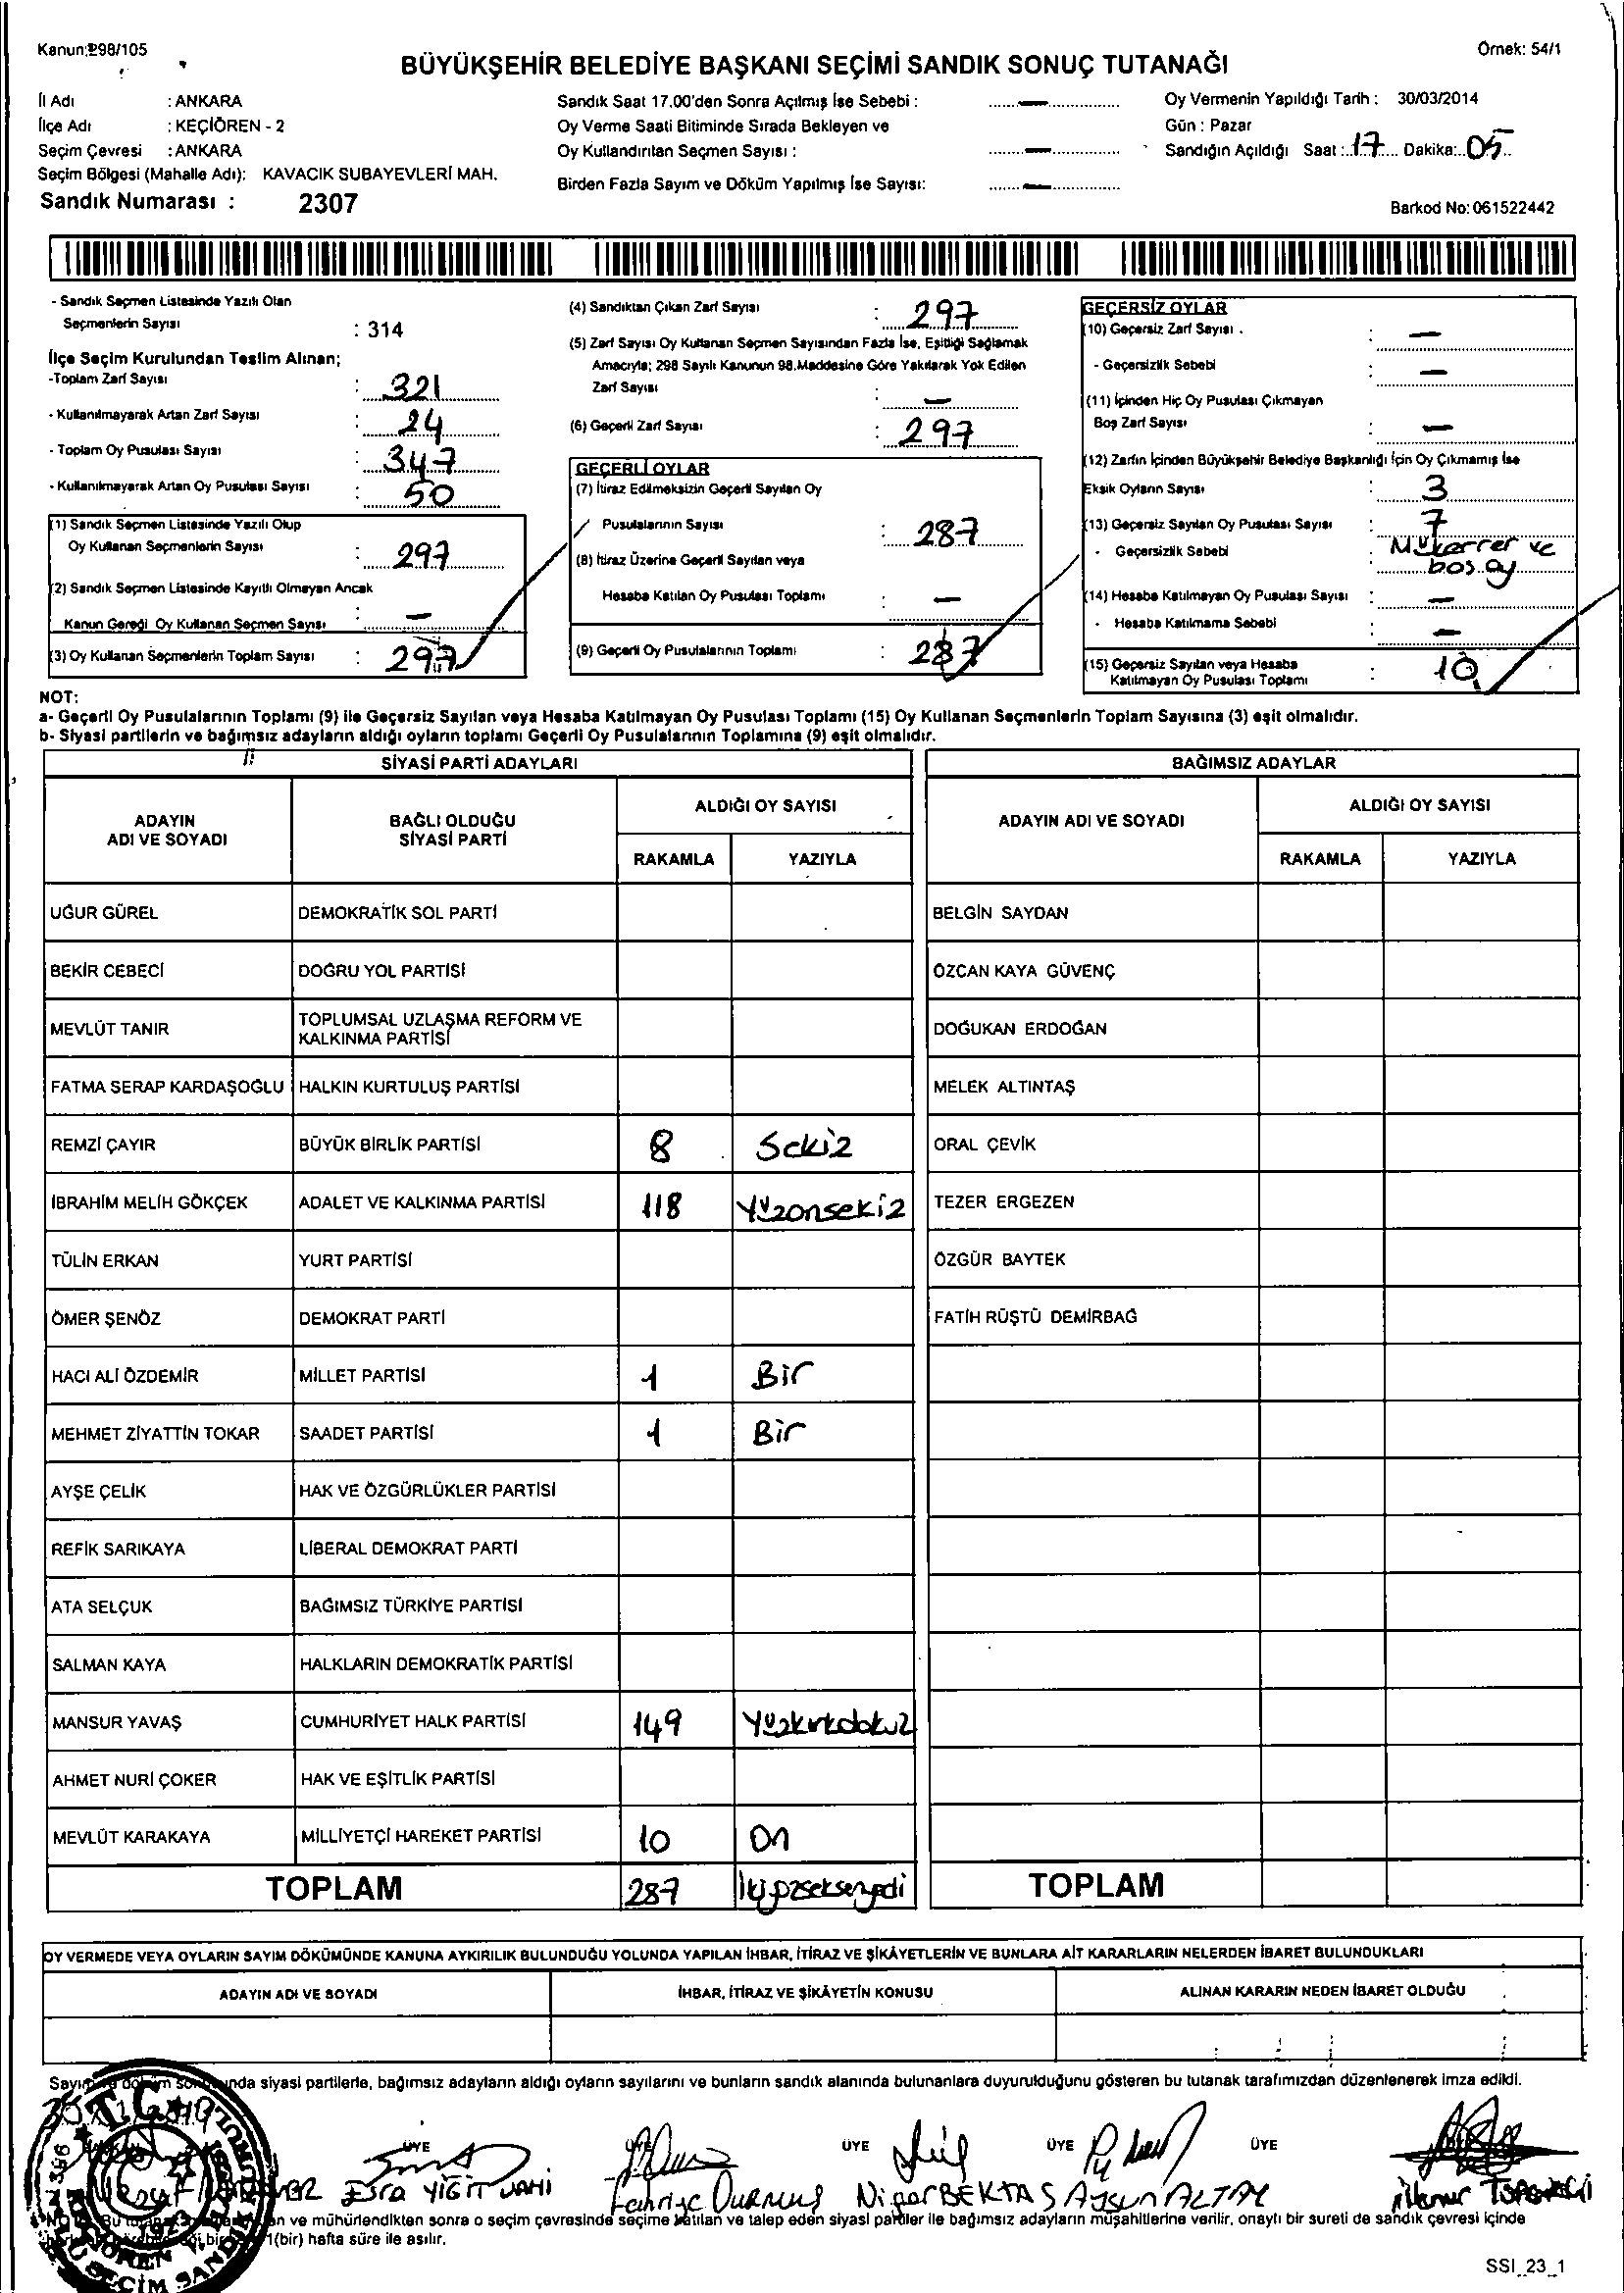 Kanun:298/105
Örnek: 54/1
BÜYÜKŞEHİR BELEDİYE BAŞKANI SEÇİMİ SANDIK SONUÇ TUTANAĞI
İl Adı : ANKARA
İlçe Adı : KEÇİÖREN - 2
Seçim Çevresi : ANKARA
Seçim Bölgesi (Mahalle Adı): KAVACIK SUBAYEVLERİ MAH.
Sandık Numarası : 2307
Sandık Saat 17.00'den Sonra Açılmış İse Sebebi : —
Oy Verme Saati Bitiminde Sırada Bekleyen ve
Oy Kullandırılan Seçmen Sayısı : —
Birden Fazla Sayım ve Döküm Yapılmış İse Sayısı: —
Oy Vermenin Yapıldığı Tarih : 30/03/2014
Gün : Pazar
Sandığın Açıldığı Saat : 17 Dakika: 05
Barkod No: 061522442
- Sandık Seçmen Listesinde Yazılı Olan
Seçmenlerin Sayısı : 314
İlçe Seçim Kurulundan Teslim Alınan;
-Toplam Zarf Sayısı : 321
- Kullanılmayarak Artan Zarf Sayısı : 24
- Toplam Oy Pusulası Sayısı : 347
- Kullanılmayarak Artan Oy Pusulası Sayısı : 50
(1) Sandık Seçmen Listesinde Yazılı Olup
Oy Kullanan Seçmenlerin Sayısı : 297
(2) Sandık Seçmen Listesinde Kayıtlı Olmayan Ancak
Kanun Gereği Oy Kullanan Seçmen Sayısı : —
(3) Oy Kullanan Seçmenlerin Toplam Sayısı : 297
(4) Sandıktan Çıkan Zarf Sayısı : 297
(5) Zarf Sayısı Oy Kullanan Seçmen Sayısından Fazla İse, Eşitliği Sağlamak
Amacıyla; 298 Sayılı Kanunun 98.Maddesine Göre Yakılarak Yok Edilen
Zarf Sayısı : —
(6) Geçerli Zarf Sayısı : 297
GEÇERLİ OYLAR
(7) İtiraz Edilmeksizin Geçerli Sayılan Oy
Pusulalarının Sayısı : 287
(8) İtiraz Üzerine Geçerli Sayılan veya
Hesaba Katılan Oy Pusulası Toplamı : —
(9) Geçerli Oy Pusulalarının Toplamı : 287
GEÇERSİZ OYLAR
(10) Geçersiz Zarf Sayısı . : —
- Geçersizlik Sebebi : —
(11) İçinden Hiç Oy Pusulası Çıkmayan
Boş Zarf Sayısı : —
(12) Zarfın İçinden Büyükşehir Belediye Başkanlığı İçin Oy Çıkmamış İse
Eksik Oyların Sayısı : 3
(13) Geçersiz Sayılan Oy Pusulası Sayısı : 7
- Geçersizlik Sebebi : Mükerrer ve
boş oy
(14) Hesaba Katılmayan Oy Pusulası Sayısı : —
- Hesaba Katılmama Sebebi : —
(15) Geçersiz Sayılan veya Hesaba
Katılmayan Oy Pusulası Toplamı : 10
NOT:
a- Geçerli Oy Pusulalarının Toplamı (9) ile Geçersiz Sayılan veya Hesaba Katılmayan Oy Pusulası Toplamı (15) Oy Kullanan Seçmenlerin Toplam Sayısına (3) eşit olmalıdır.
b- Siyasi partilerin ve bağımsız adayların aldığı oyların toplamı Geçerli Oy Pusulalarının Toplamına (9) eşit olmalıdır.
SİYASİ PARTİ ADAYLARI
ADAYIN ADI VE SOYADI
BAĞLI OLDUĞU SİYASİ PARTİ
ALDIĞI OY SAYISI
RAKAMLA YAZIYLA
UĞUR GÜREL DEMOKRATİK SOL PARTİ
BEKİR CEBECİ DOĞRU YOL PARTİSİ
MEVLÜT TANIR TOPLUMSAL UZLAŞMA REFORM VE
KALKINMA PARTİSİ
FATMA SERAP KARDAŞOĞLU HALKIN KURTULUŞ PARTİSİ
REMZİ ÇAYIR BÜYÜK BİRLİK PARTİSİ 8 Sekiz
İBRAHİM MELİH GÖKÇEK ADALET VE KALKINMA PARTİSİ 118 Yüzonsekiz
TÜLİN ERKAN YURT PARTİSİ
ÖMER ŞENÖZ DEMOKRAT PARTİ
HACI ALİ ÖZDEMİR MİLLET PARTİSİ 1 Bir
MEHMET ZİYATTİN TOKAR SAADET PARTİSİ 1 Bir
AYŞE ÇELİK HAK VE ÖZGÜRLÜKLER PARTİSİ
REFİK SARIKAYA LİBERAL DEMOKRAT PARTİ
ATA SELÇUK BAĞIMSIZ TÜRKİYE PARTİSİ
SALMAN KAYA HALKLARIN DEMOKRATİK PARTİSİ
MANSUR YAVAŞ CUMHURİYET HALK PARTİSİ 149 Yüzkırkdokuz
AHMET NURİ ÇOKER HAK VE EŞİTLİK PARTİSİ
MEVLÜT KARAKAYA MİLLİYETÇİ HAREKET PARTİSİ 10 On
TOPLAM 287 İkiyüzseksenyedi
BAĞIMSIZ ADAYLAR
ADAYIN ADI VE SOYADI
ALDIĞI OY SAYISI
RAKAMLA YAZIYLA
BELGİN SAYDAN
ÖZCAN KAYA GÜVENÇ
DOĞUKAN ERDOĞAN
MELEK ALTINTAŞ
ORAL ÇEVİK
TEZER ERGEZEN
ÖZGÜR BAYTEK
FATİH RÜŞTÜ DEMİRBAĞ
TOPLAM
OY VERMEDE VEYA OYLARIN SAYIM DÖKÜMÜNDE KANUNA AYKIRILIK BULUNDUĞU YOLUNDA YAPILAN İHBAR, İTİRAZ VE ŞİKÂYETLERİN VE BUNLARA AİT KARARLARIN NELERDEN İBARET BULUNDUKLARI
ADAYIN ADI VE SOYADI İHBAR, İTİRAZ VE ŞİKÂYETİN KONUSU ALINAN KARARIN NEDEN İBARET OLDUĞU
siyasi partilerle, bağımsız adayların aldığı oyların sayılarını ve bunların sandık alanında bulunanlara duyurulduğunu gösteren bu tutanak tarafımızdan düzenlenerek imza edildi.
T.C.
ÜYE ÜYE ÜYE ÜYE
Esra YİĞİT Fahriye DURMUŞ Nigar BEKTAŞ Aysun ALTAY
ve mühürlendikten sonra o seçim çevresinde seçime katılan ve talep eden siyasi partiler ile bağımsız adayların müşahitlerine verilir, onaylı bir sureti de sandık çevresi içinde
1(bir) hafta süre ile asılır.
SSI_23_1